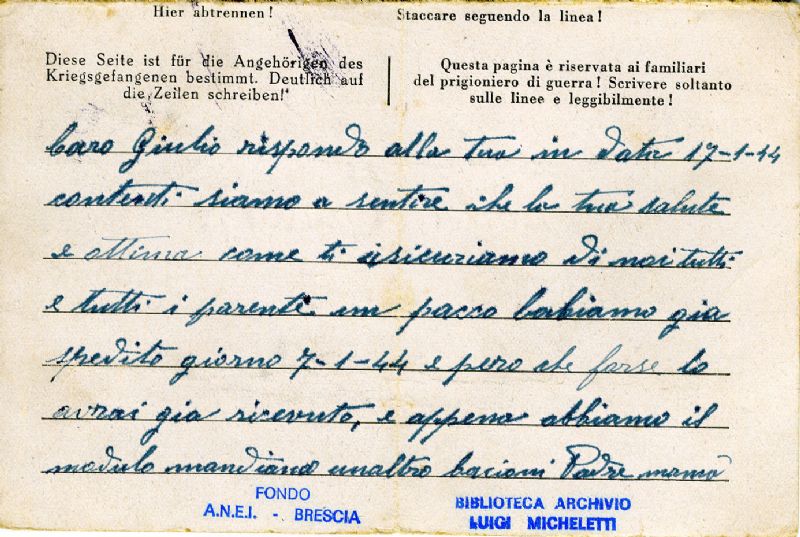 Hier abtrennen!
Staccare seguendo la linea!
Diese Seite ist für die Angehörigen des
Kriegsgefangenen bestimmt. Deutlich auf
die Zeilen schreiben!"
Questa pagina è riservata ai familiari
del prigioniero di guerra! Scrivere soltanto
sulle linee e leggibilmente!
Caro Giulio rispondo alla tua in data 17-1-44
contenti siamo a sentire che la tua salute
e ottima come ti assicuriamo di noi tutti
e tutti i parenti un pacco labiamo gia
spedito giorno 7-1-44 e pero che forse lo
avrai gia ricevuto, e appena abbiamo il
modulo mandiano unaltro bacioni Padre mamá
FONDO
A.N.E.I. - BRESCIA
BIBLIOTECA ARCHIVIO
LUIGI MICHELETTI